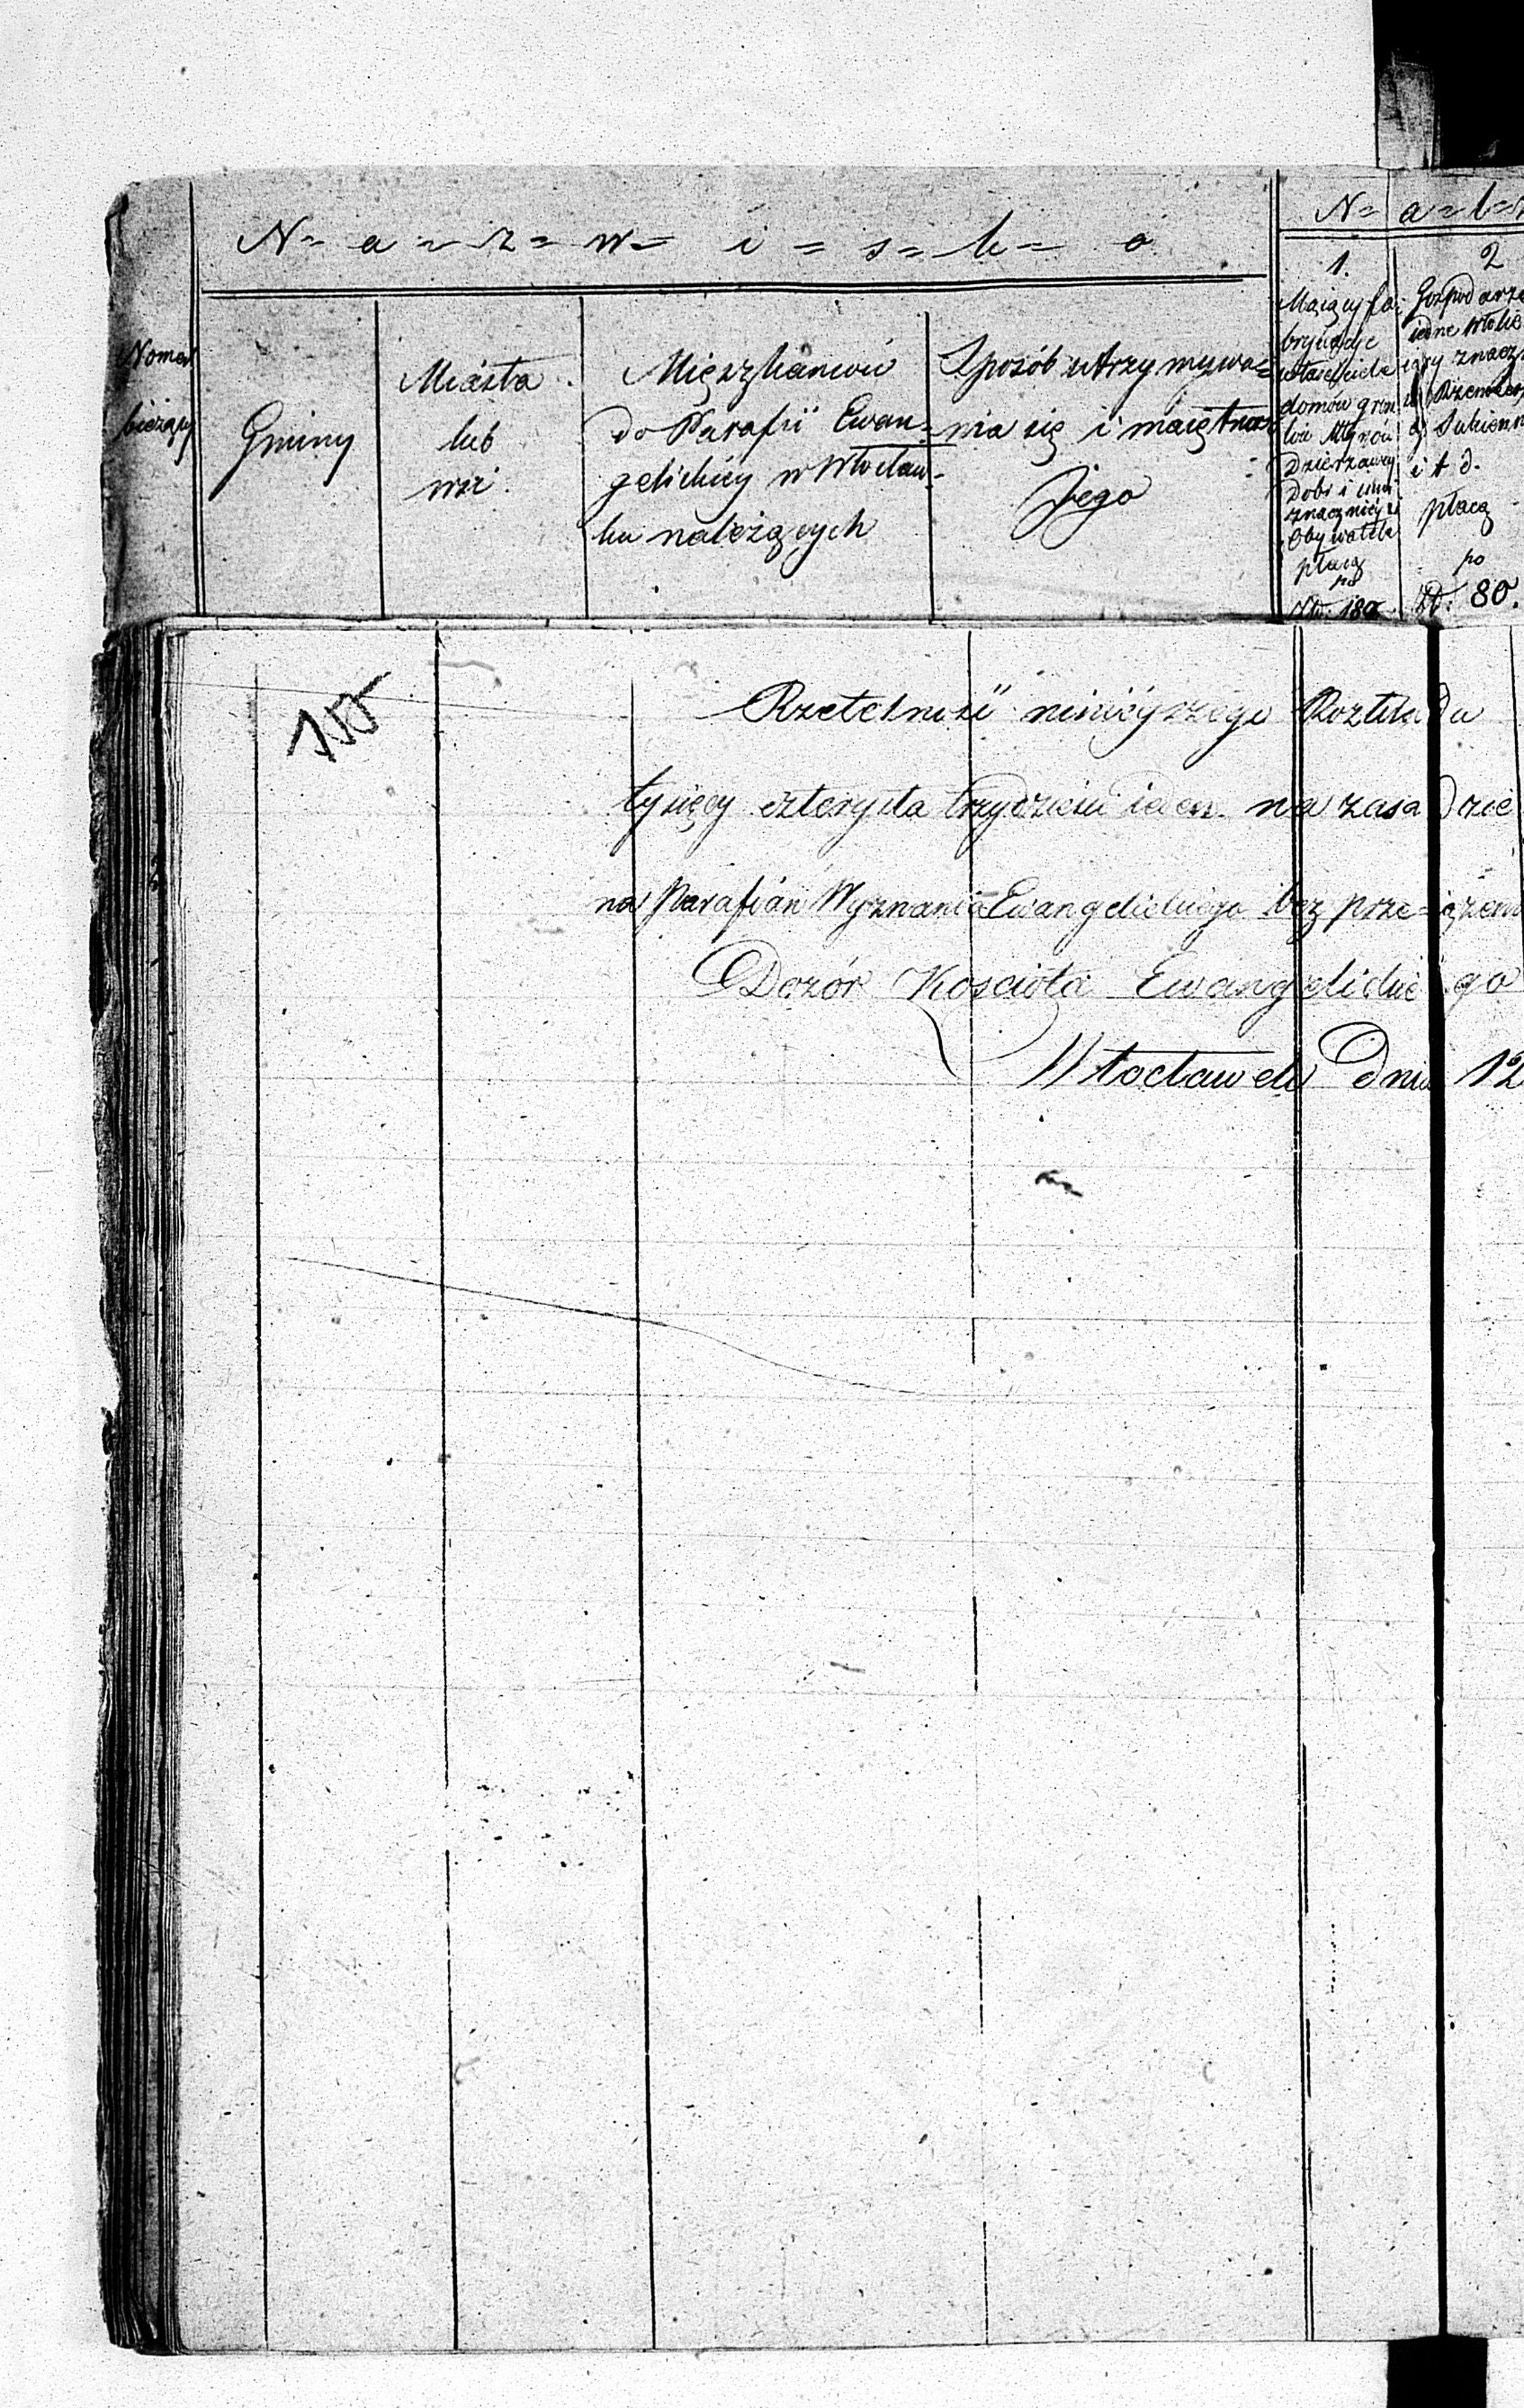 N = a = z = w = i = s = k = o
N = a = l =
Nomer
bieżący
Gminy
Miasta
lub
wsi
Mięszkańców
do Parafii Ewan=
gelickiéy w Włocław=
ku należących
Sposób utrzymywa=
nia się i maiętność
Jego
1.
Maiący fa=
brykacje
właściciele
domów gron
Młynów
Dzierzawcy
Dóbr i inni
znacznieysi
Obywatele
płacą
po
Złp. 180
2
Gospodarze
iedne włókę
znacz
Rzemieśl
Sukienn
i t d.
płacą
po
Zł: 80.
100
Rzetelność ninieyszego Rozkładu
tysięcy czterysta trzydzieści ieden na zasadzie
na Parafian Wyznania Ewangelickiego bez prze=
Dozór Kościoła Ewangelickiego
Włocławek Dnia 12